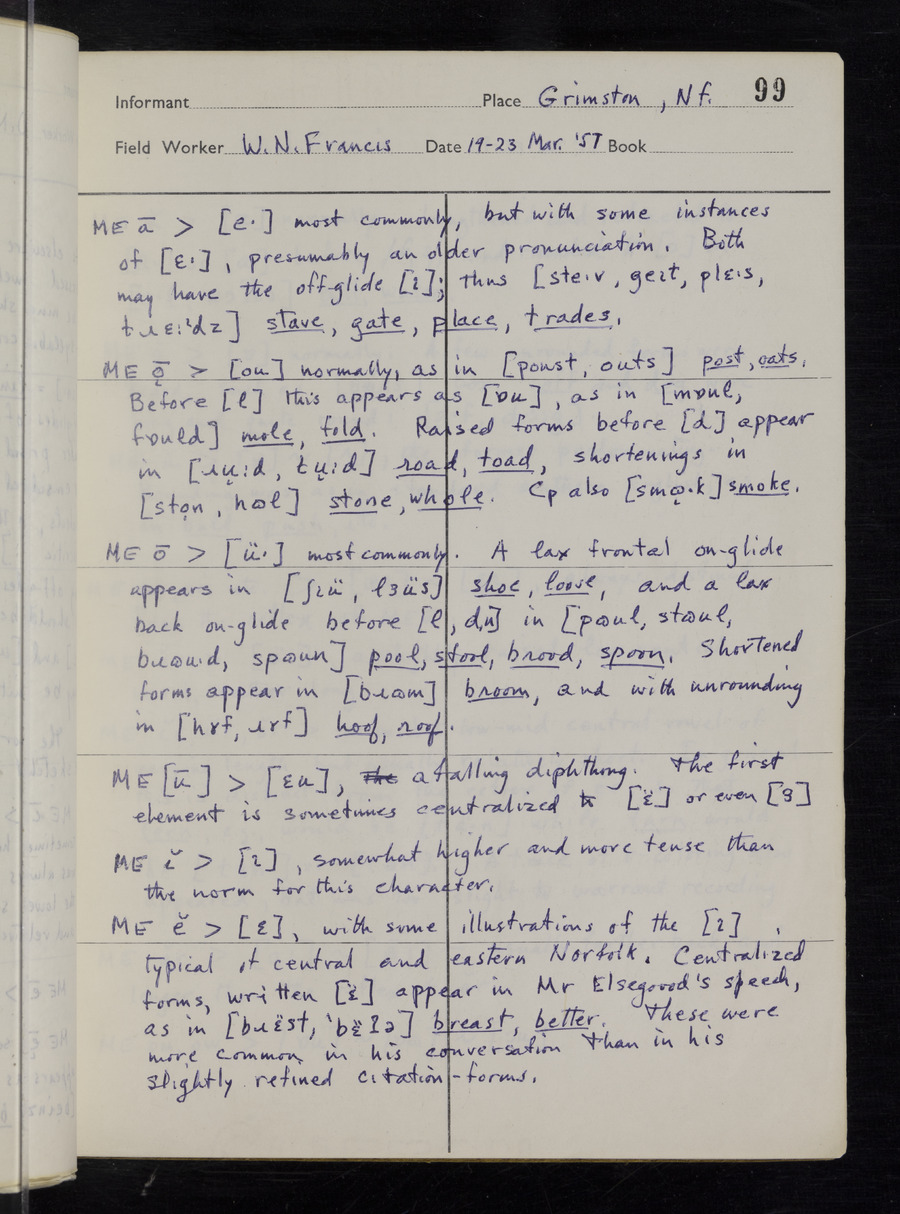 Informant Place Grimston, Nf. 99
Field Worker W.N. Francis Date 19-23 Mar. '57 Book
ME ā > [e·] most commonly, but with some instances
of [ɛ·], presumably an older pronunciation. Both
may have the off-glide [ɪ]; thus [ste·v, geɪt, plɛ·s,
tɹɛ:ᶦdz] stave, gate, place, trades.
ME ǭ > [ou] normally, as in [poust, outs] post, oats.
Before [l] this appears as [ɒu], as in [mɒul,
fɒuld] mole, fold. Raised forms before [d] appear
in [ɹu̜:d, tu̜:d] road, toad, shortenings in
[stọn, hɷl] stone, whole. Cp also [smɷ̜·k] smoke.
ME ō > [ü·] most commonly. A lax frontal on-glide
appears in [ʃɪü, lɜüs] shoe, loose, and a lax
back on-glide before [l, d, n] in [pɷul, stɷul,
bɹɷu·d, spɷun] pool, stool, brood, spoon. Shortened
forms appear in [bɹɷm] broom, and with unrounding
in [hɤf, ɹɤf] hoof, roof.
ME [ū] > [ɛu], the a falling diphthong. The first
element is sometimes centralized to [ɛ̈] or even [ɜ]
ME ĭ > [ɪ], somewhat higher and more tense than
the norm for this character.
ME ĕ > [ɛ], with some illustrations of the [ɪ],
typical of central and eastern Norfolk. Centralized
forms, written [ɛ̈] appear in Mr Elsegood's speech,
as in [bɹɛ̈st, 'bɛ̈ʔə] breast, better. These were
more common in his conversation than in his
slightly refined citation-forms.